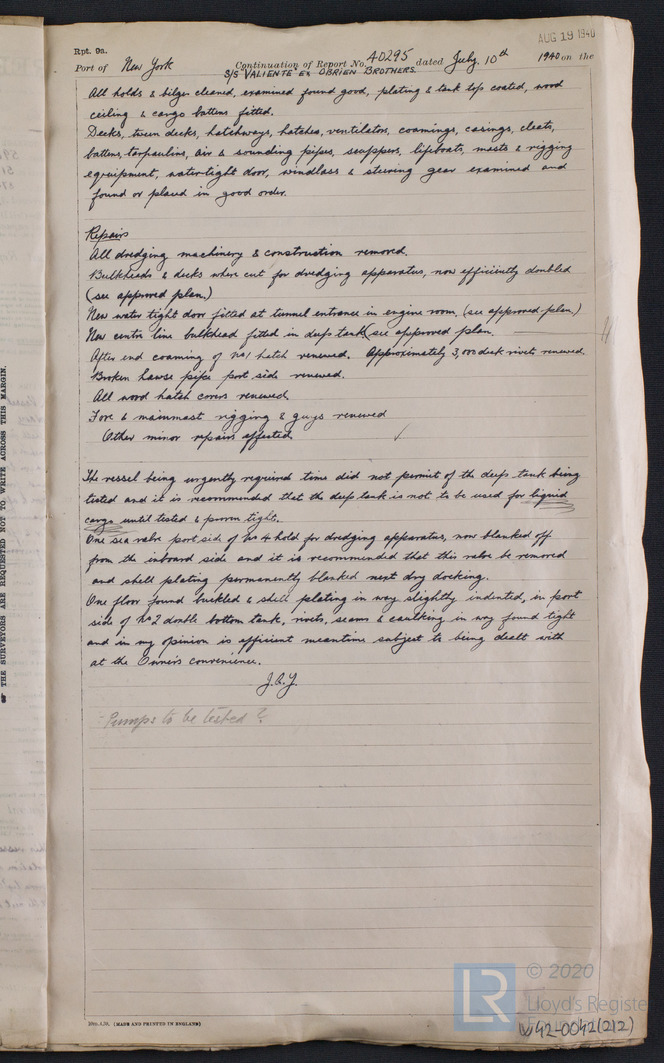 AUG 19 1940
Rpt. 9a.
Port of New York Continuation of Report No. 40295 dated July 10th 1940 on the
S/S VALIENTE EX OBRIEN BROTHERS.
All holds & bilges cleaned, examined found good, plating & tank tops coated, wood
ceiling & cargo battens fitted.
Decks, tween decks, hatchways, hatches, ventilators, coamings, casings, cleats,
battens, tarpaulins, air & sounding pipes, scuppers, lifeboats, masts & rigging
equipment, watertight door, windlass & steering gear examined and
found or placed in good order.
Repairs
All dredging machinery & construction removed.
Bulkheads & decks where cut for dredging apparatus, now efficiently doubled
(see approved plan.)
New water tight door fitted at tunnel entrance in engine room. (see approved plan.)
New centre line bulkhead fitted in deep tank (see approved plan.
After end coaming of No1 hatch renewed. Approximately 3,000 deck rivets renewed.
Broken hawse pipe port side renewed.
All wood hatch covers renewed
Fore & mainmast rigging & guys renewed
Other minor repairs effected
The vessel being urgently required time did not permit of the deep tank being
tested and it is recommended that the deep tank is not to be used for liquid
cargo until tested & proven tight.
One sea valve port side of No 4 hold for dredging apparatus, now blanked off
from the inboard side and it is recommended that this valve be removed
and shell plating permanently blanked next dry docking.
One floor found buckled & shell plating in way slightly indented, in port
side of No 2 double bottom tank, rivets, seams & caulking in way found tight
and in my opinion is efficient meantime subject to being dealt with
at the Owners convenience.
Pumps to be tested?
THE SURVEYORS ARE REQUESTED NOT TO WRITE ACROSS THIS MARGIN.
(MADE AND PRINTED IN ENGLAND)
LR
© 2020
Lloyd's Registe
W42-0042(212)